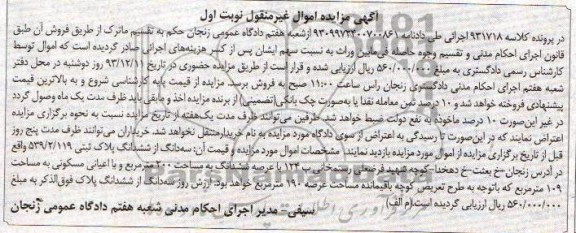 آگهی مزایده اموال غیرمنقول نوبت اول
در پرونده کلاسه 931718 اجرائی طی دادنامه 9309972430700861 ازشعبه هفتم دادگاه عمومی زنجان حکم به تقسیم ماترک از طریق فروش آن طبق
قانون اجرای احکام مدنی و تقسیم وجوه وراث به نسبت سهم ایشان پس از کسر هزینه‌های اجرائی صادر گردیده است که اموال توسط
کارشناس رسمی دادگستری به مبلغ 560/000/000 ریال ارزیابی شده و قرار است از طریق مزایده حضوری در تاریخ 93/12/11 روز دوشنبه در محل دفتر
شعبه هفتم اجرای احکام مدنی دادگستری زنجان راس ساعت 11:00 صبح به فروش برسد. مزایده از قیمت پایه کارشناسی شروع و به بالاترین قیمت
پیشنهادی فروخته خواهد شد و 10 درصد ثمن معامله نقدا یا به‌صورت چک بانکی(تضمینی) از برنده مزایده اخذ و مابقی باید ظرف مدت یک ماه وصول گردد
در غیر این‌صورت 10 درصد ماخوذه به نفع دولت ضبط خواهد شد. طرفین می‌توانند ظرف مدت یک‌هفته از تاریخ مزایده نسبت به نحوه برگزاری مزایده
اعتراض نمایند که در این‌صورت تا رسیدگی به اعتراض از سوی دادگاه مورد مزایده به نام خریدارمنتقل نخواهد شد. خریداران می‌توانند ظرف مدت پنج روز
قبل از تاریخ برگزاری مزایده از اموال مورد مزایده بازدید نمایند. مشخصات اموال مورد مزایده و قیمت آن: سه‌دانگ از ششدانگ پلاک ثبتی 539/2/119 واقع
در آدرس زنجان-خ بعثت-خ دهخدا-کوچه شهید فرضعلی رجبخانی-پ 124 با عرصه ششدانگ به مساحت 200 مترمربع و با اعیانی مسکونی به مساحت
109 مترمربع که باتوجه به طرح تعریض کوچه باقیمانده مساحت عرصه 190 مترمربع خواهد بود. ارزش روز سه‌دانگ از ششدانگ پلاک فوق‌الذکر به مبلغ
560/000/000 ریال ارزیابی گردیده است.(م الف)
سیفی- مدیر اجرای احکام مدنی شعبه هفتم دادگاه عمومی زنجان